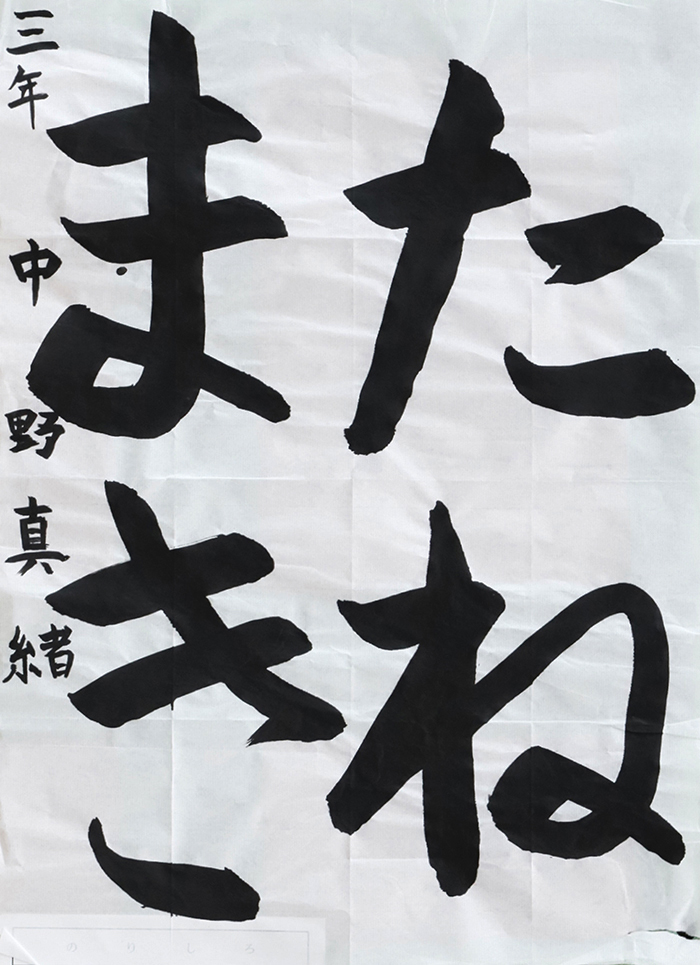 たね
まき
三年 中野真緒
のりしろ